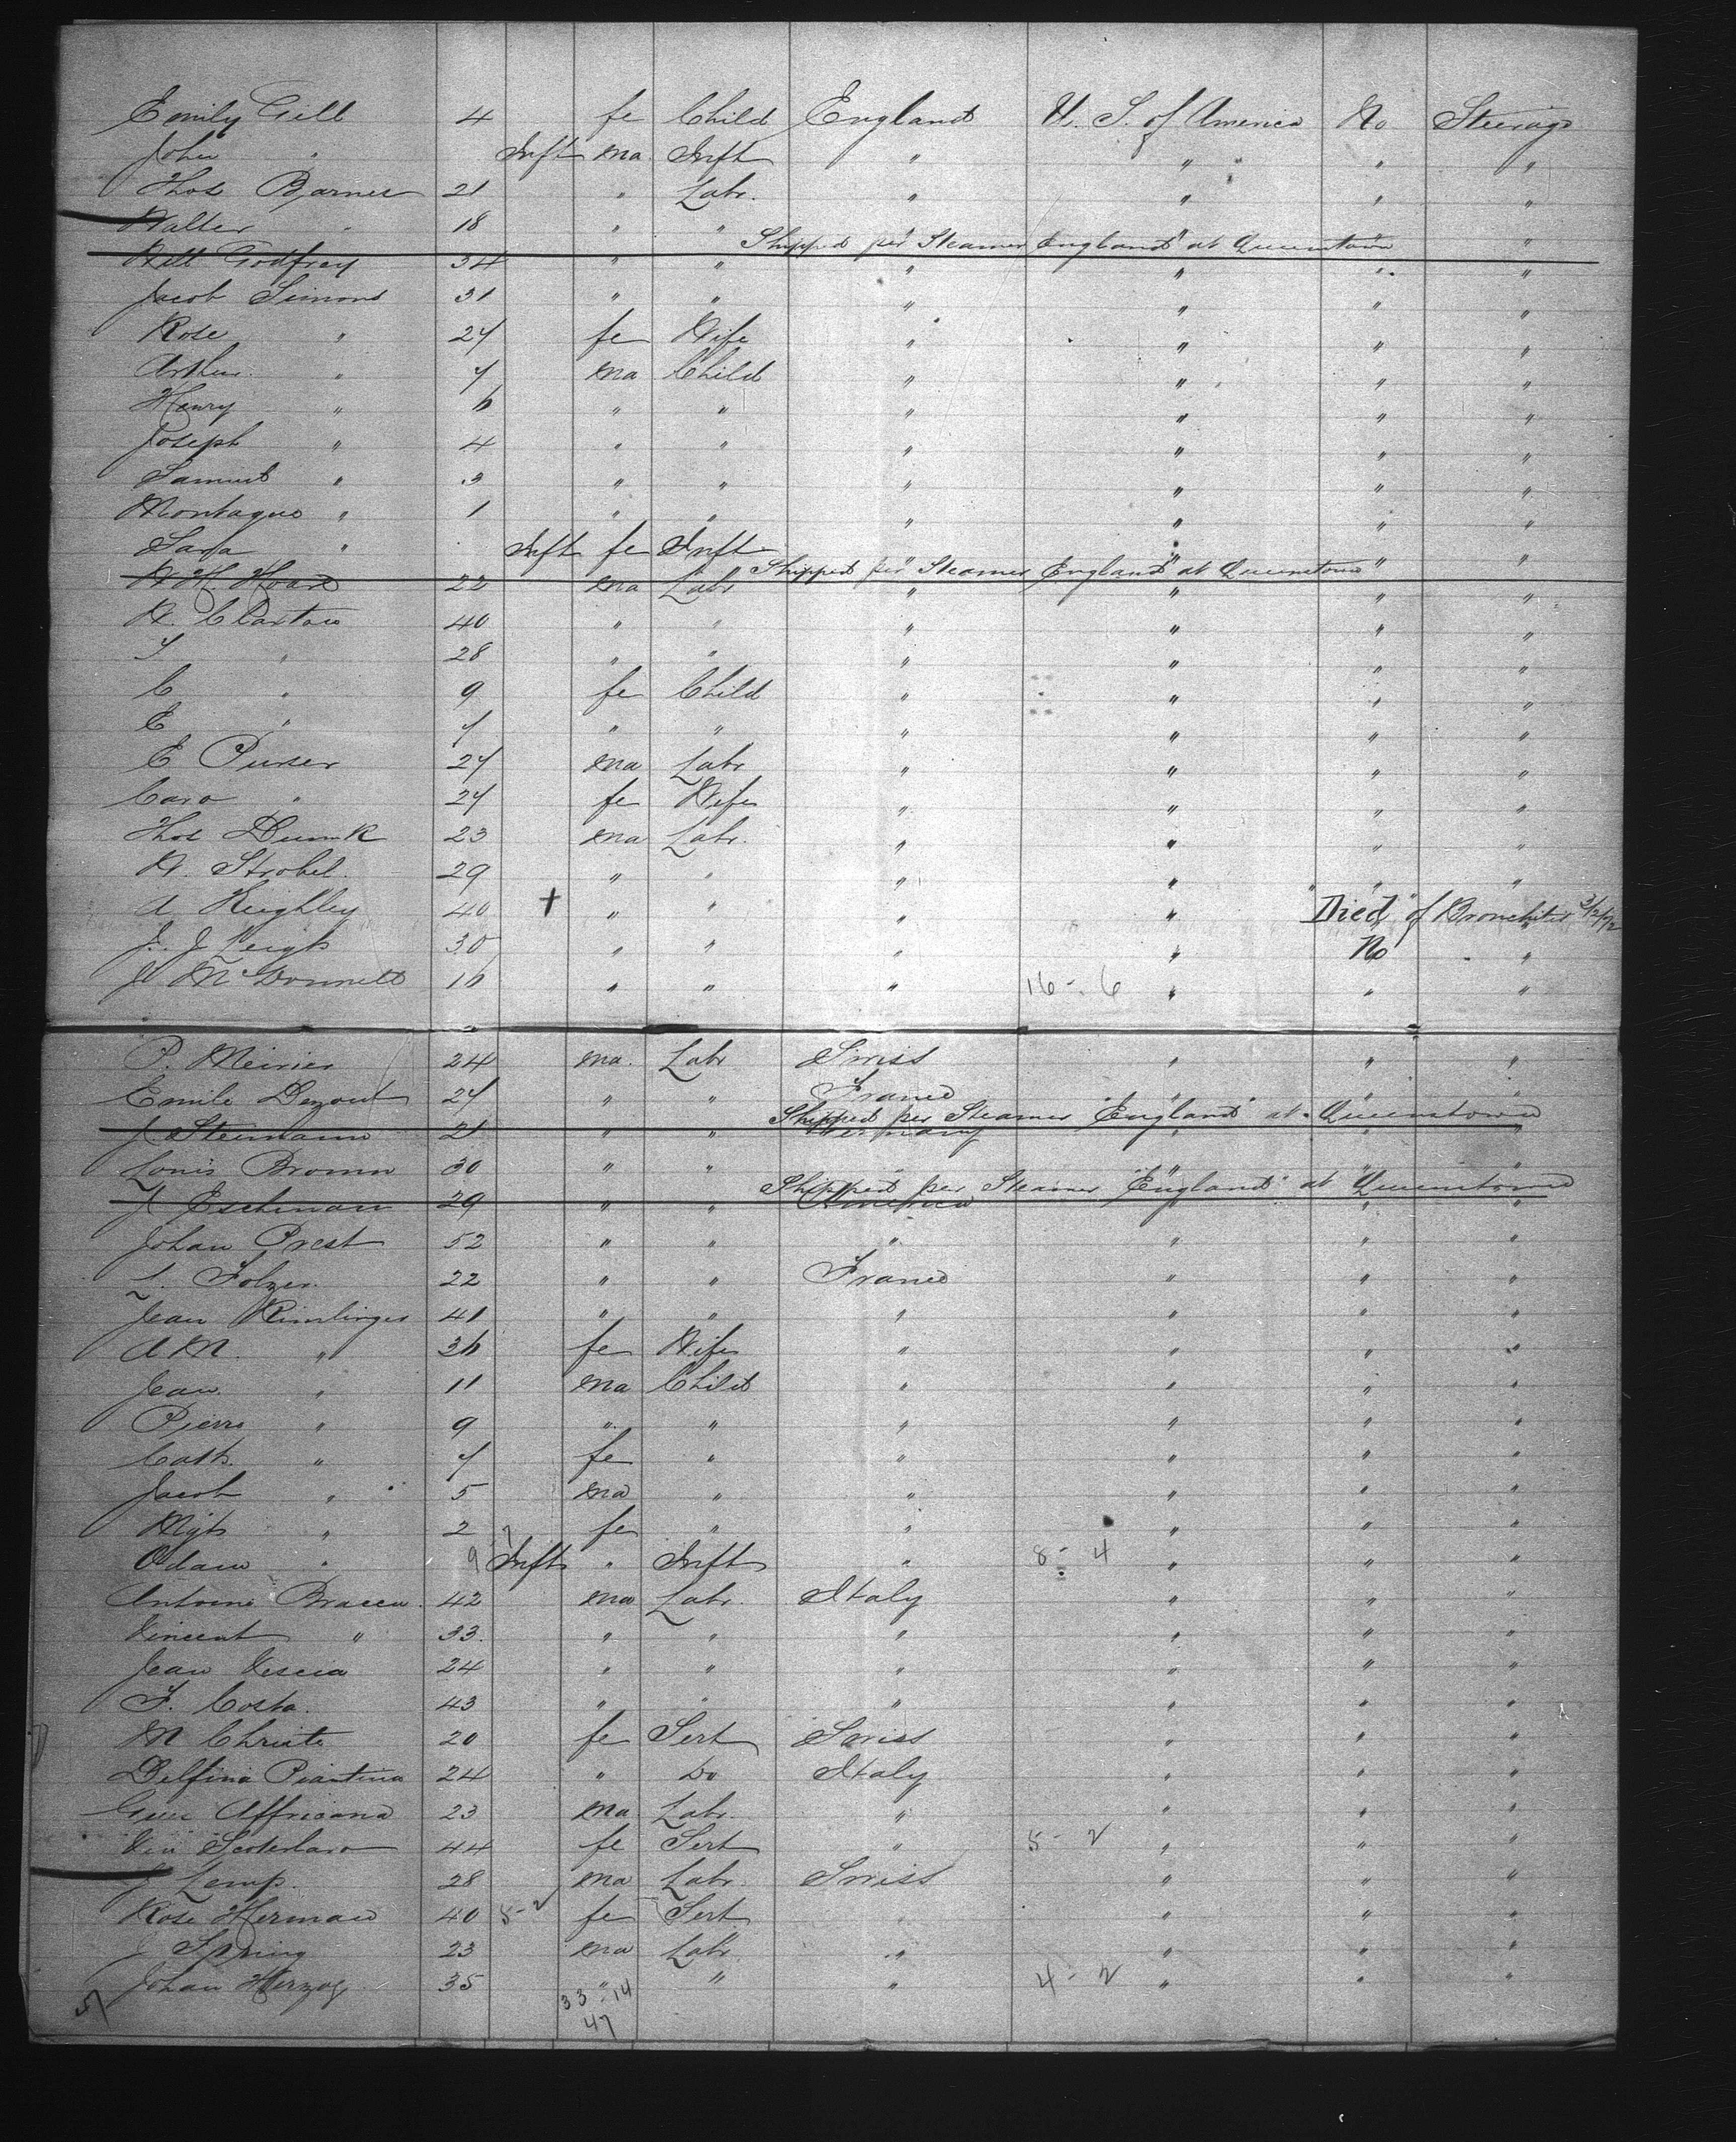 Emily Gill 4 fe Child England U. S. of America No Steerage
John " Inft ma Inft " " " "
Thos Barnes 21 " Labr. " " " "
Walter " 18 " " " " " "
Will Godfrey 34 " " Shipped per Steamer England at Queenstown " " " "
Jacob Simons 31 " " " " " "
Rose " 27 fe Wife " " " "
Arthur " 7 ma Child " " " "
Henry " 6 " " " " " "
Joseph " 4 " " " " " "
Samuel " 3 " " " " " "
Montague " 1 " " " " " "
Sara " Inft fe Inft " " " "
W H. Hoard 22 ma Labr Shipped per Steamer England at Queenstown " " " "
W. Claxton 40 " " " " " "
" 28 " " " " " "
C " 9 fe Child " " " "
E " 7 " " " " " "
E Purser 27 ma Labr " " " "
Caro " 27 fe Wife " " " "
Thos Dunk 23 ma Labr. " " " "
W. Strobel. 29 " " " " " "
A Keighley 40 + " " " " Died of Bronchitis
J. J Leigh 30 " " " " No "
J McDonnell 16 " " " 16 - 6 " " "
P. Meirier 24 ma. Labr Swiss " " "
Emile Dezout 27 " " France " " "
J Steimann 21 " " Shipped per Steamer "England" at Queenstown Germany " " "
Louis Bromm 30 " " " " " "
J Eschmann 29 " " Shipped per Steamer "England" at Queenstown America " " "
Johan Prest 52 " " " " " "
L. Folzer 22 " " France " " "
Jean Rimlinger 41 " " " " " "
A M. " 36 fe Wife " " " "
Jean " 11 ma Child " " " "
Pierre " 9 " " " " " "
Cath " 7 fe " " " " "
Jacob " 5 ma " " " " "
" 2 fe " " " " "
Odam " 9 Inft " Inft " 8 - 4 " " "
Antoine Bracca 42 ma Labr. Italy " " "
Vincent " 33. " " " " " "
Jean Vescia 24 " " " " " "
F. Costa. 43 " " " " " "
M Christe 20 fe Sert Swiss " " "
Delfina Piantina 24 " Do Italy " " "
Affricana 23 ma Labr. " " " "
44 fe Sert " 5 - 2 " " "
J Lemp. 28 ma Labr. Swiss " " "
Rose Herman 40 5-2 fe Sert " " " "
J Spring 23 ma Labr " " " "
Johan Herzog. 35 " " " 4 - 2 " " "
51 33 - 14
47